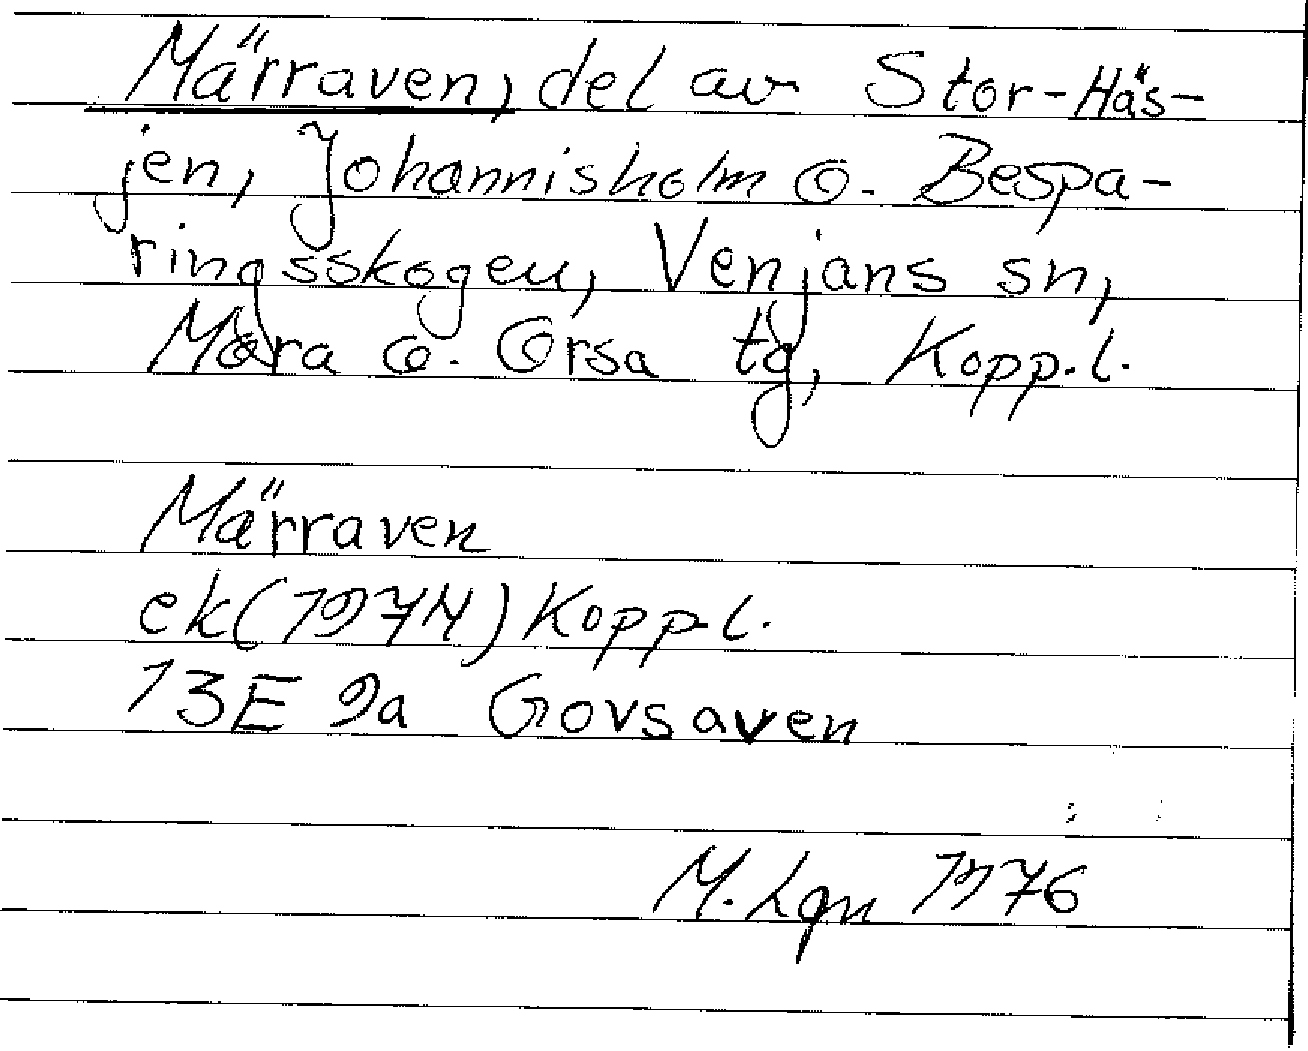 Märraven, del av Stor-Häs-
jen, Johannisholm o. Bespa-
ringsskogen, Venjans sn,
Mora o. Orsa tg, Kopp.l.
Märraven
ek(1974) Kopp.l.
13E 9a Govsaven
M. Lgn 1976